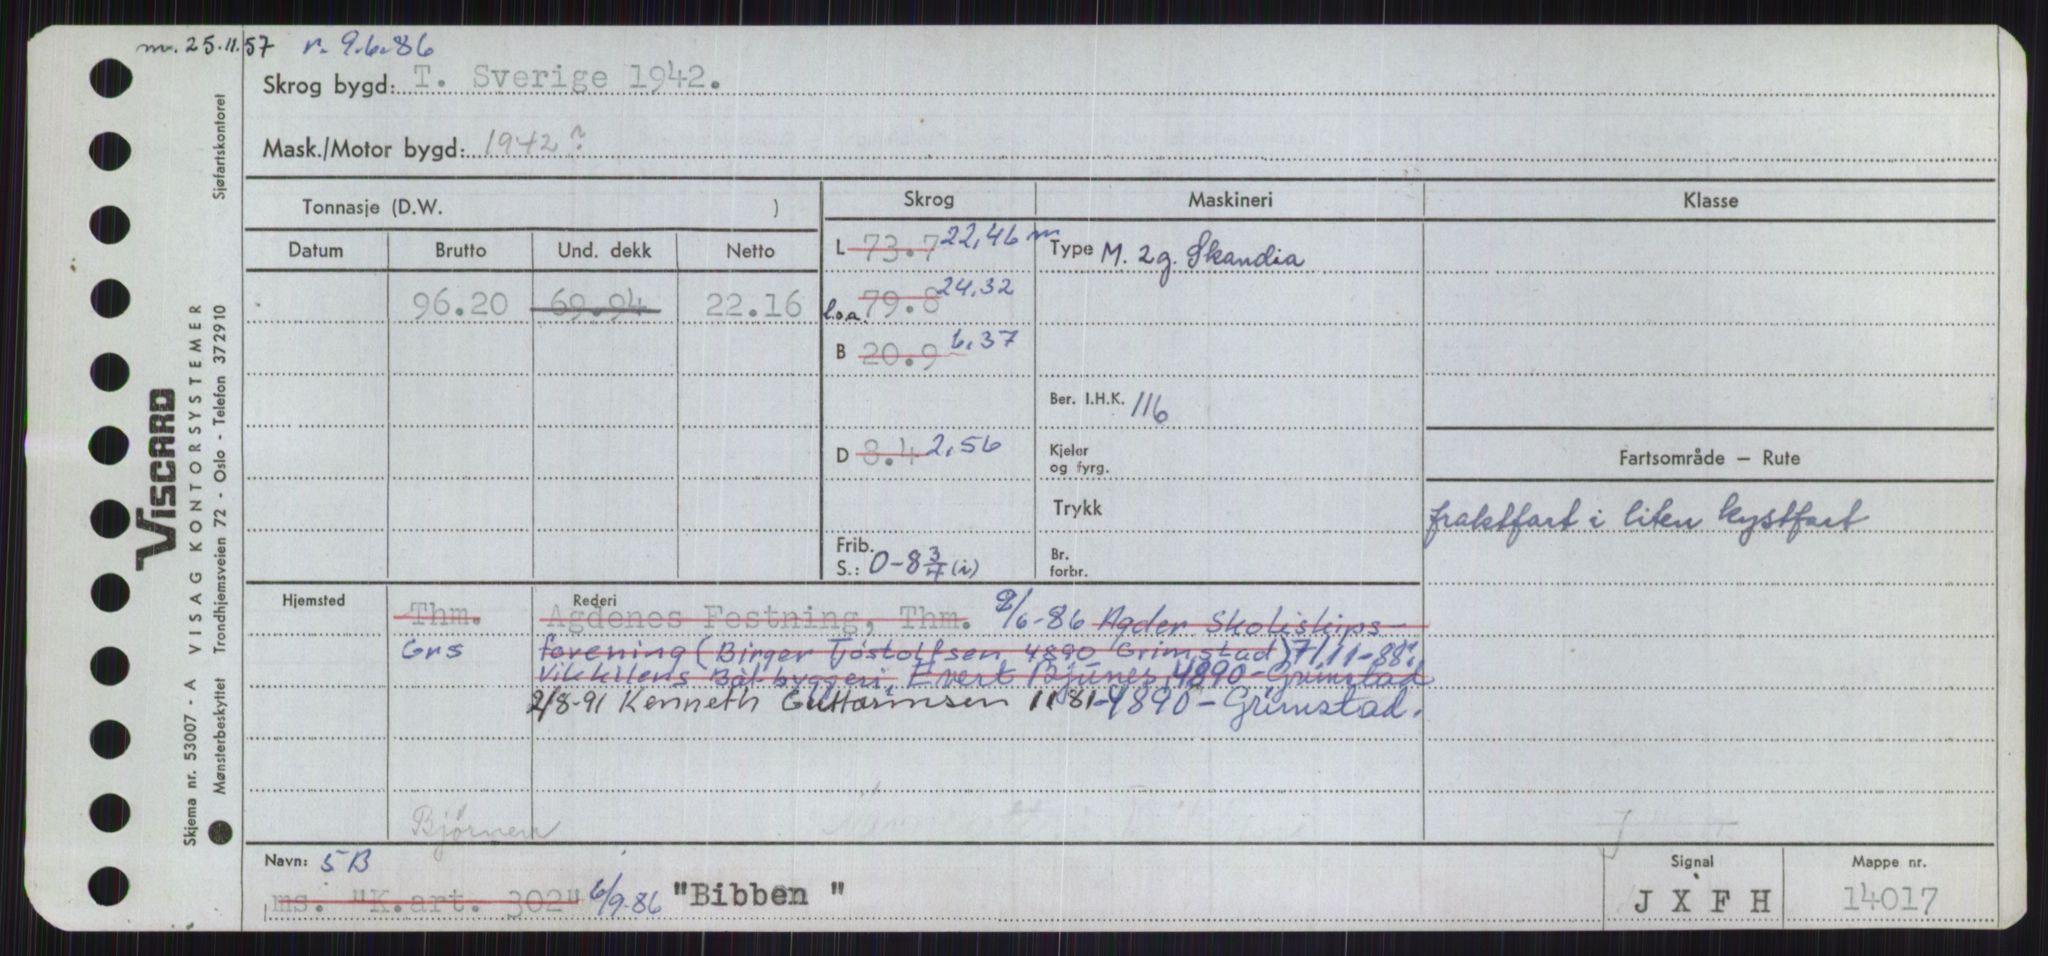 m. 25.11.57 r. 9.6.86
Skrog bygd: T. Sverige 1942.
Mask./Motor bygd: 1942?
Tonnasje (D.W. ) Skrog Maskineri Klasse
Datum Brutto Und. dekk Netto
L 73.7 22,46 m Type M. 2g. Skandia
96.20 69.94 22.16 l.o.a. 79.8 24,32
B 20.9 6,37
Ber. I.H.K. 116
D 8.4 2,56 Kjeler og fyrg.
Fartsområde — Rute
Trykk
fraktfart i liten kystfart
Frib. S.: 0-8 3/4 (i) Br. forbr.
Hjemsted Rederi
Thm. Agdenes Festning, Thm. 9/6-86 Agder Skoleskips-
Grs forening (Birger Tjøstolfsen 4890 Grimstad) 7/11-88:
Vikkilens Båt-byggeri, Evert Bjunes, 4890-Grimstad
2/8-91 Kenneth Guttormsen 1181-4890-Grimstad.
Bjørnen
Navn: 5B Signal Mappe nr.
ms. "K.art. 302" 6/9.86 "Bibben " J X F H 14017
Sjøfartskontoret
VISCARD
Skjema nr. 53007 - A VISAG KONTORSYSTEMER
Mønsterbeskyttet Trondhjemsveien 72 - Oslo - Telefon 372910